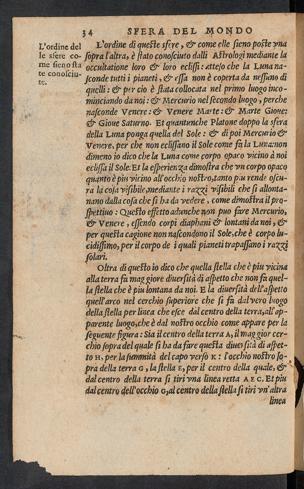 34 SFERA DEL MONDO
L'ordine del
le sfere co-
me sieno sta
te conosciu-
te.
L'ordine di queste sfere, & come elle sieno poste una
sopra l'altra, è stato conosciuto dalli Astrologi mediante la
occultatione loro & loro eclissi: atteso che la Luna na-
sconde tutti i pianeti, & essa non è coperta da nessuno di
quelli: & per ciò è stata collocata nel primo luogo inco-
minciando da noi: & Mercurio nel secondo luogo, perche
nasconde Venere: & Venere Marte: & Marte Gione:
& Gione Saturno. Et quantenche Platone doppo la sfera
della Luna ponga quella del Sole: & di poi Mercurio &
Venere, per che non eclissano il Sole come fa la Luna: non
dimeno io dico che la Luna come corpo opaco vicino à noi
eclissa il Sole. Et la esperienza dimostra che un corpo opaco
quanto è piu vicino all'occhio nostro, tanto piu rende oscu-
ra la cosa visibile mediante i razzi visibili che si allonta-
nano dalla cosa che si ha da vedere, come dimostra il pro-
spettivo: Questo effetto adunche non puo fare Mercurio,
& Venere, essendo corpi diaphani & lontani da noi, &
per questa cagione non nascondono il Sole, che è corpo lu-
cidissimo, per il corpo de i quali pianeti trapassano i razzi
solari.
Oltra di questo io dico che quella stella che è piu vicina
alla terra fa maggiore diversità di aspetto che non fa quel-
la stella che è piu lontana da noi. E la diversità dell'aspetto
quell'arco nel cerchio superiore che si fa dal vero luogo
della stella per linea che esce dal centro della terra, all'ap-
parente luogo, che è dal nostro occhio come appare per la
seguente figura: Sia il centro della terra A, il maggior cer-
chio sopra del quale si ha da fare questa diversità di aspet-
to H, per la summità del capo verso K: l'occhio nostro so-
pra della terra G, la stella E, per il centro della quale, &
dal centro della terra si tiri una linea retta A E C. Et piu
dal centro dell'occhio G, al centro della stella si tiri un'altra
linea